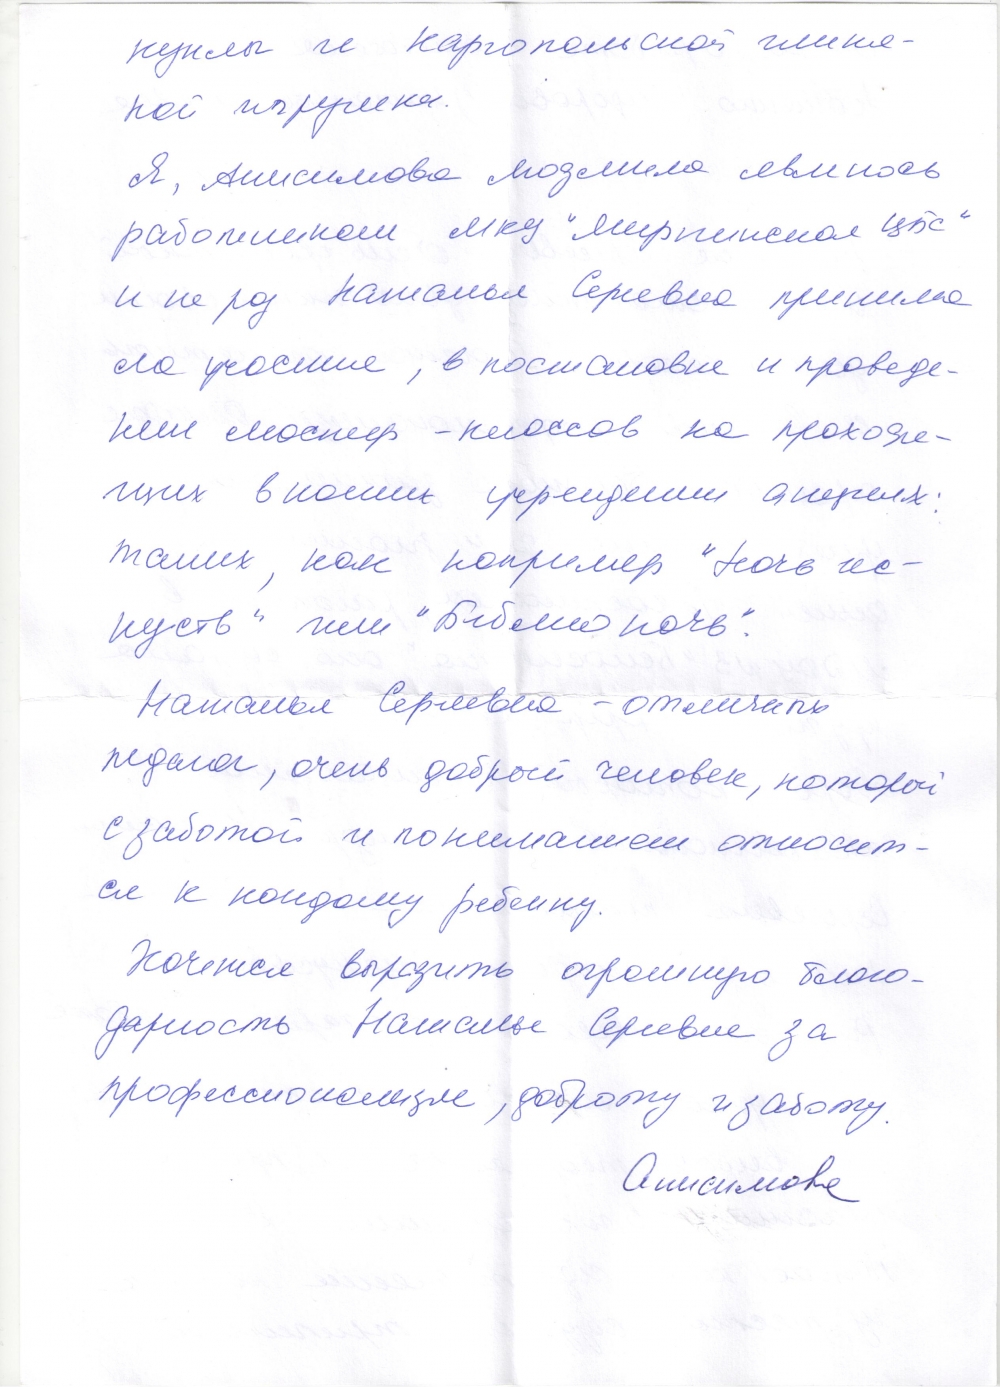 куклы и Каргопольской глиня-
ной игрушки.
Я, Анисимова Людмила являюсь
работником МКУ "Мирнинская ЦБС"
и не раз Наталья Сергеевна принима
ла участие, в постановке и проведе-
нии мастер-классов на проходя-
щих в нашем учреждении акциях:
таких, как например "Ночь ис-
куств" или "Библионочь".
Наталья Сергеевна - отличный
педагог, очень добрый человек, который
с заботой и пониманием относит-
ся к каждому ребенку.
Хочется выразить огромную благо-
дарность Наталье Сергеевне за
профессионализм, доброту и заботу.
Анисимова